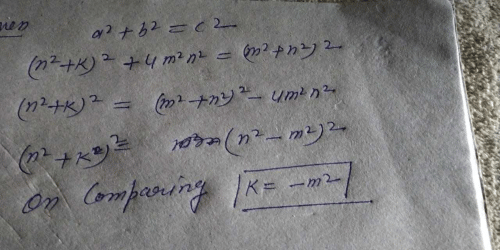 a² + b² = c2
(n²+k)² + 4m²n² = (m²+n²)2
(n²+k)² = (m²+n²)² - 4m²n²
(n²+k)² = (n²-m²)2
On Comparing K = -m²